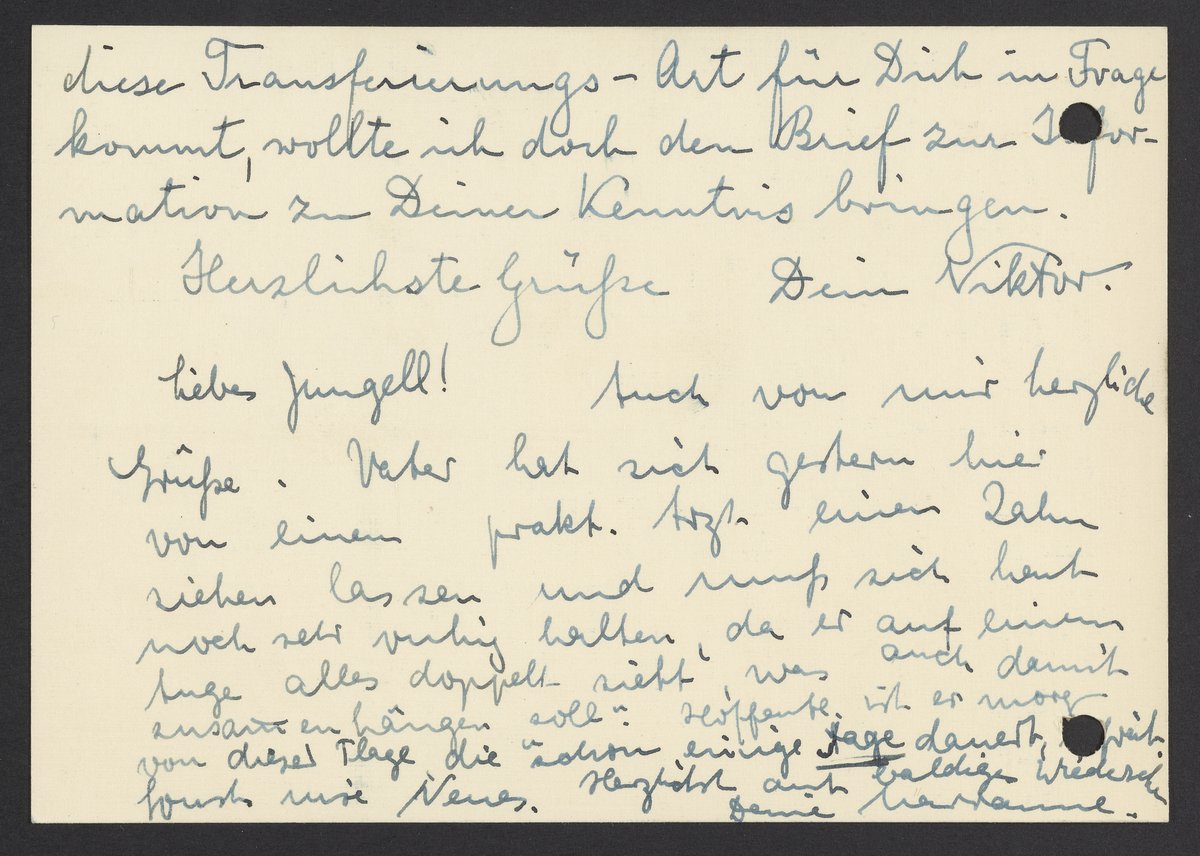 diese Transferierungs-Art für Dich in Frage
kommt, wollte ich doch den Brief zur Infor-
mation zu Deiner Kenntnis bringen.
Herzlichste Grüße Dein Viktor.
Liebes Jungell! Auch von mir herzliche
Grüße. Vater hat sich gestern hier
von einem prakt. Arzt einen Zahn
ziehen lassen und muß sich heut
noch sehr ruhig halten, da er auf einem
Auge alles doppelt sieht, was auch damit
zusammenhängen soll". Hoffentl. ist er morg
von dieser Plage die schon einige Tage dauert, befreit.
Sonst nixe Neues. Herzlichst auf baldiges Wiedersehn
Deine Marianne.